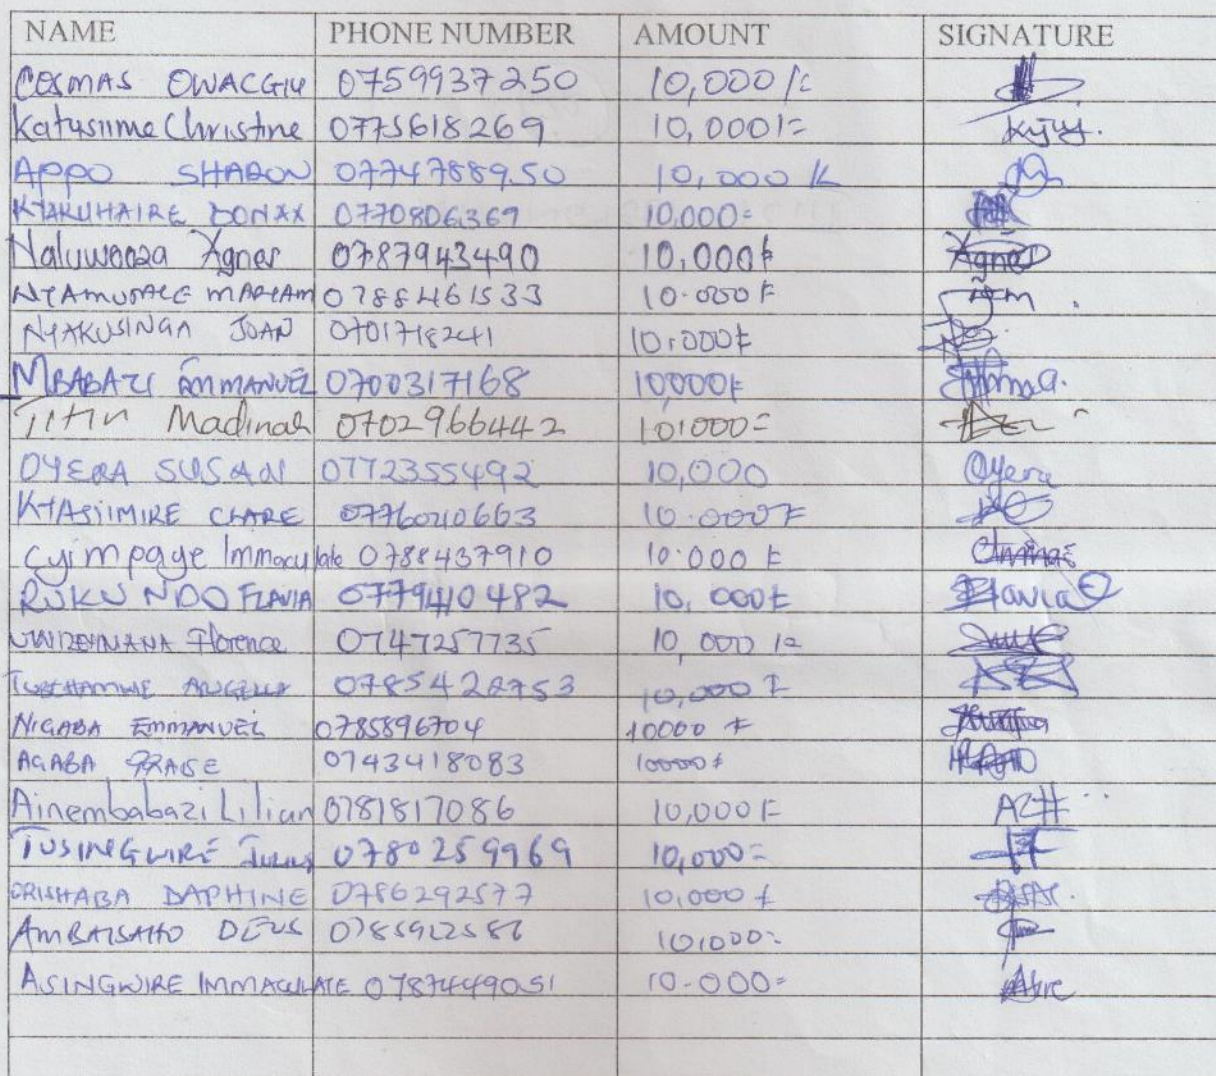 NAME PHONE NUMBER AMOUNT SIGNATURE
COSMAS OWACGIU 0759937250 10,000/=
Katusiime Christine 0775618269 10,000/=
APPO SHARON 0774788950 10,000/=
KYAKUHAIRE DONAX 0770806369 10,000=
Naluwooza Agnes 0787943490 10,000/= Agnes
NYAMUSALE MARIAM 0788461533 10.000/=
NYAKUSINGA JOAN 0701718241 10,000/=
MBABAZI EMMANUEL 0700317168 10,000/=
Madinah 0702966442 10,000=
OYERA SUSAN 0772355492 10,000 Oyera
KYASIIMIRE CLARE 0776040663 10.000/=
Cyimpaye Immaculate 0788437910 10.000/=
RUKUNDO FLAVIA 0779410482 10,000/= Flavia
Florence 0747257735 10,000/=
0785428753 10,000/=
NIGABA EMMANUEL 0785896704 10000/=
AGABA PRAISE 0743418083 10000/=
Ainembabazi Lilian 0781817086 10,000/=
TUSINGWIRE Julius 0780259969 10,000=
ORISHABA DAPHINE 0786292577 10,000/=
DEUS 10,000=
ASINGWIRE IMMACULATE 0787449051 10.000=